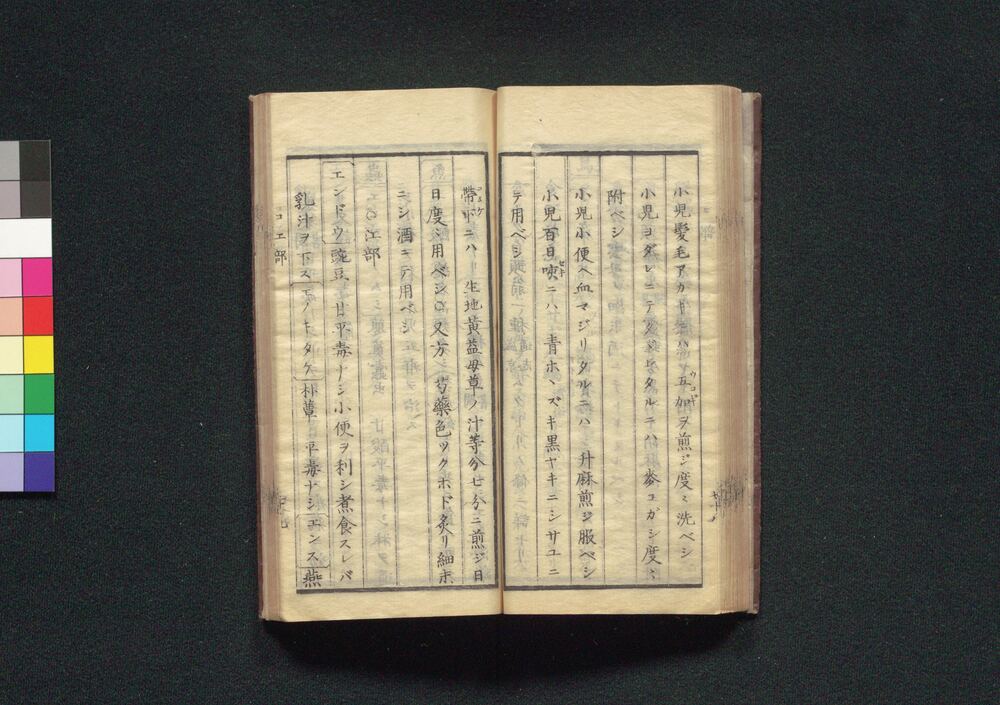 小児髪毛アカキニハ五加ヲ煎ジ度〻洗ベシ
小児ヨダレニテタヾレタルニハ麥コガシ度〻
附ベシ
小児小便ヘ血マジリタルニハ升麻煎ジ服ベシ
小児百日咳ニハ青ホヽズキ黒ヤキニシサユニ
テ用ベシ
帶下ニハ生地黄益母草ノ汁等分七分ニ煎ジ日
日度〻用ベシ○又方芍藥色ツクホド炙リ細末
ニシ酒ニテ用ベシ
○江部
エンドウ豌豆甘平毒ナシ小便ヲ利シ煮食スレバ
乳汁ヲ下ス エノキタケ 朴蕈平毒ナシ エンス 燕
コエ部